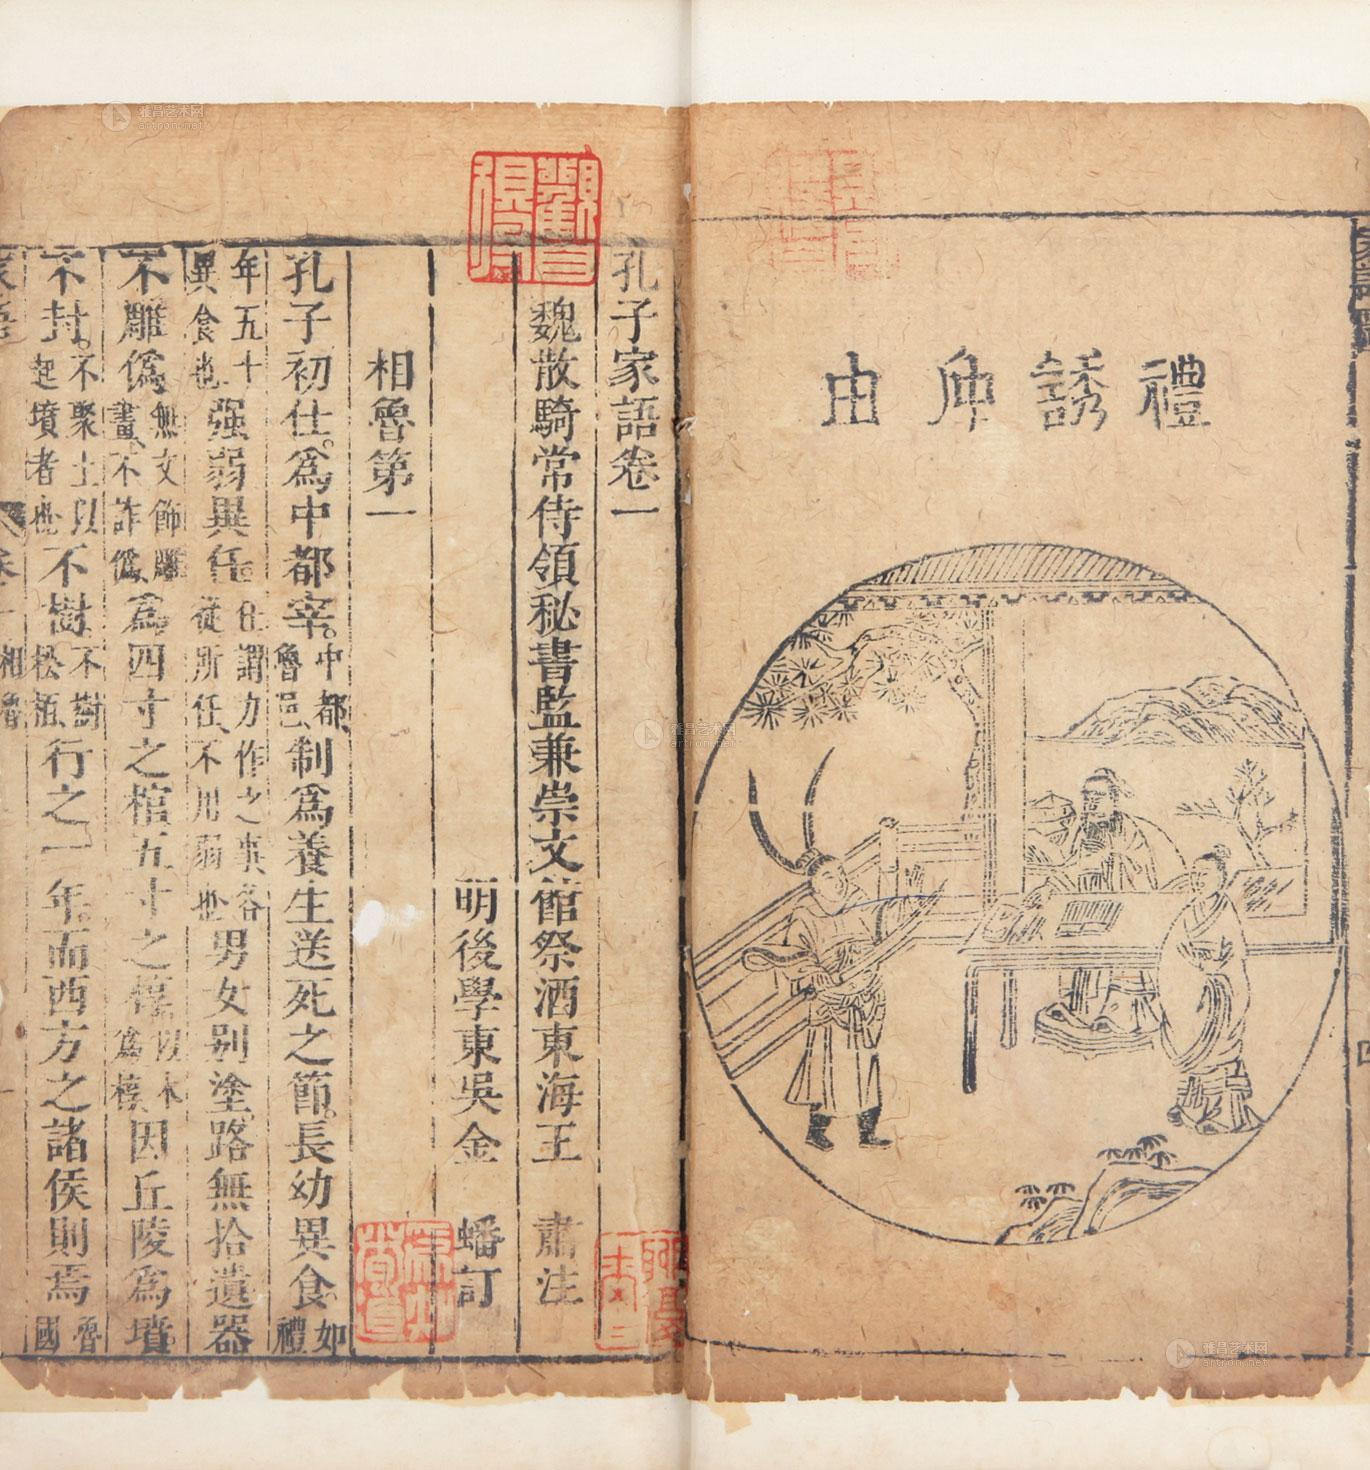 禮誘卑由
孔子家語卷一
魏散騎常侍領秘書監兼崇文館祭酒東海王 肅注
明後學東吳金 蟠訂
相魯第一
孔子初仕。爲中都宰。中都、魯邑、制爲養生送死之節。長幼異食。如禮
年五十異食也強弱異任。任謂力作之事各從所任、不用弱也男女別塗。路無拾遺器
不雕僞、無文飾雕畫、不詐僞、爲四寸之棺五寸之槨、以木爲槨、因丘陵爲墳。
不封。不聚土以起墳者也不樹。不樹松栢、行之一年。而西方之諸侯則焉。魯國
家語
卷一 相魯
一
四
雅昌艺术网
artron.net
雅昌艺术网
artron.net
雅昌艺术网
artron.net